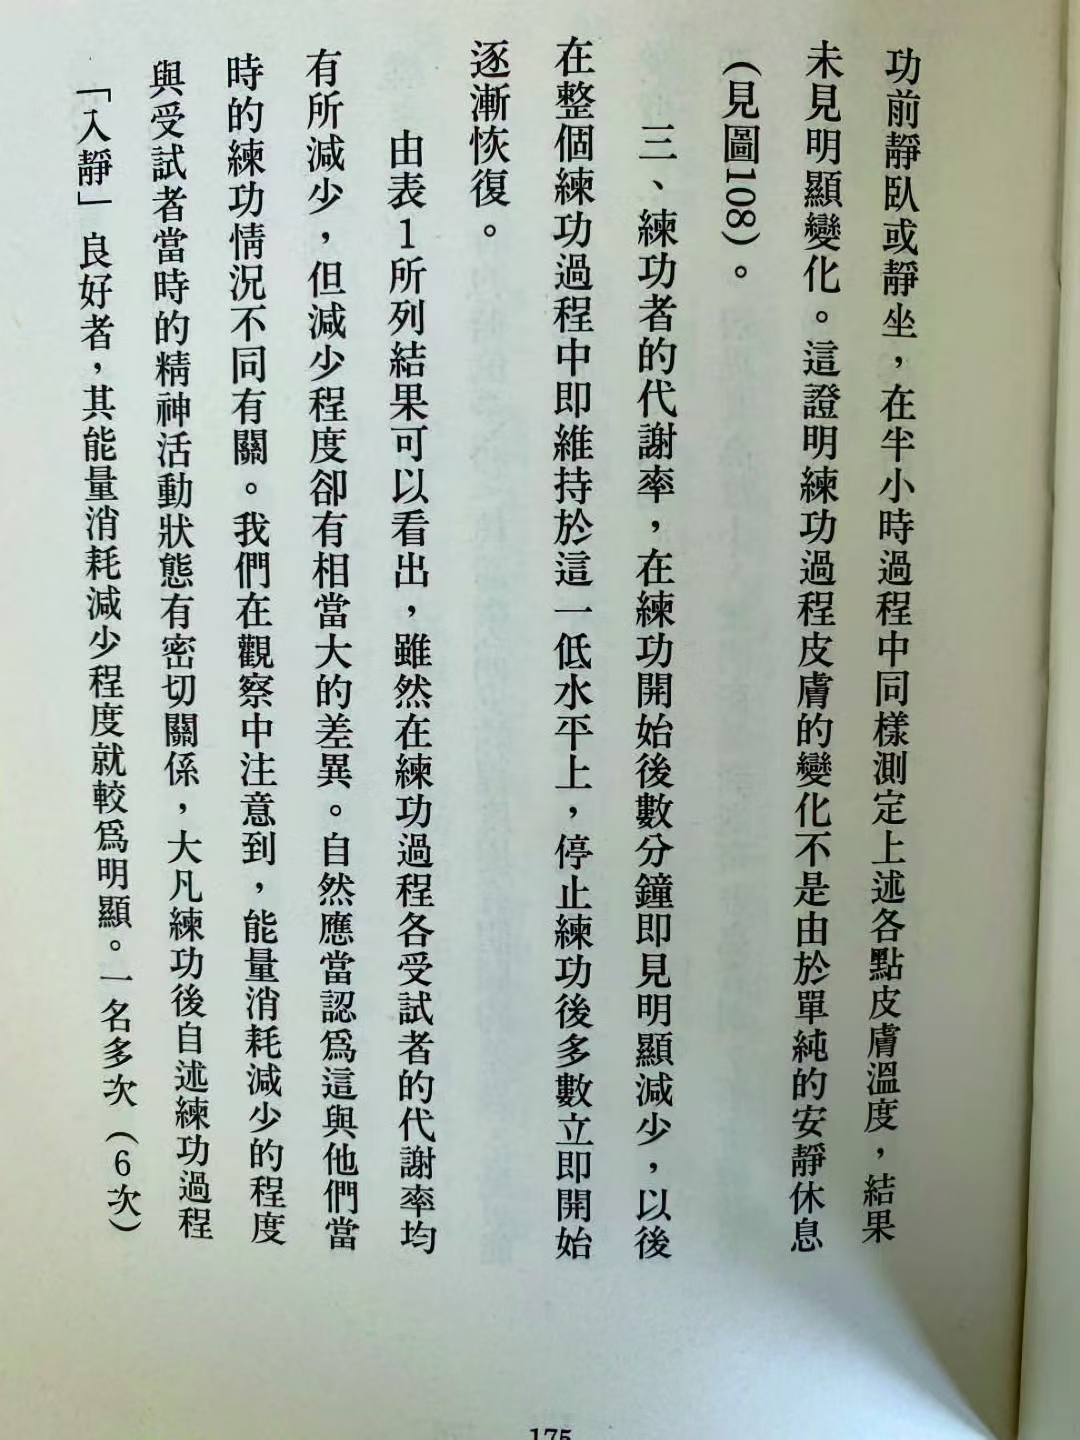 功前靜臥或靜坐，在半小時過程中同樣測定上述各點皮膚溫度，結果
未見明顯變化。這證明練功過程皮膚的變化不是由於單純的安靜休息
（見圖108）。
三、練功者的代謝率，在練功開始後數分鐘即見明顯減少，以後
在整個練功過程中即維持於這一低水平上，停止練功後多數立即開始
逐漸恢復。
由表1所列結果可以看出，雖然在練功過程各受試者的代謝率均
有所減少，但減少程度卻有相當大的差異。自然應當認爲這與他們當
時的練功情況不同有關。我們在觀察中注意到，能量消耗減少的程度
與受試者當時的精神活動狀態有密切關係，大凡練功後自述練功過程
「入靜」良好者，其能量消耗減少程度就較爲明顯。一名多次（6次）
175